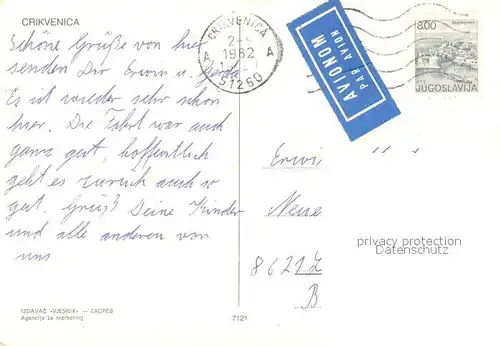 CRIKVENICA
Schöne Grüße von hier
senden Dir Erwin u. Gerda
Es ist wieder sehr schön
hier. Die Fahrt war auch
ganz gut, hoffentlich
geht es zurück auch so
gut. Grüß Deine Kinder
und alle anderen von
uns
IZDAVAČ «VJESNIK» — ZAGREB
Agencija za marketing
7121
CRIKVENICA
A A
1982
51260
AVIONOM
PAR AVION
8.00
JUGOSLAVIJA
Erwi
Neue
8621
B
privacy protection
Datenschutz